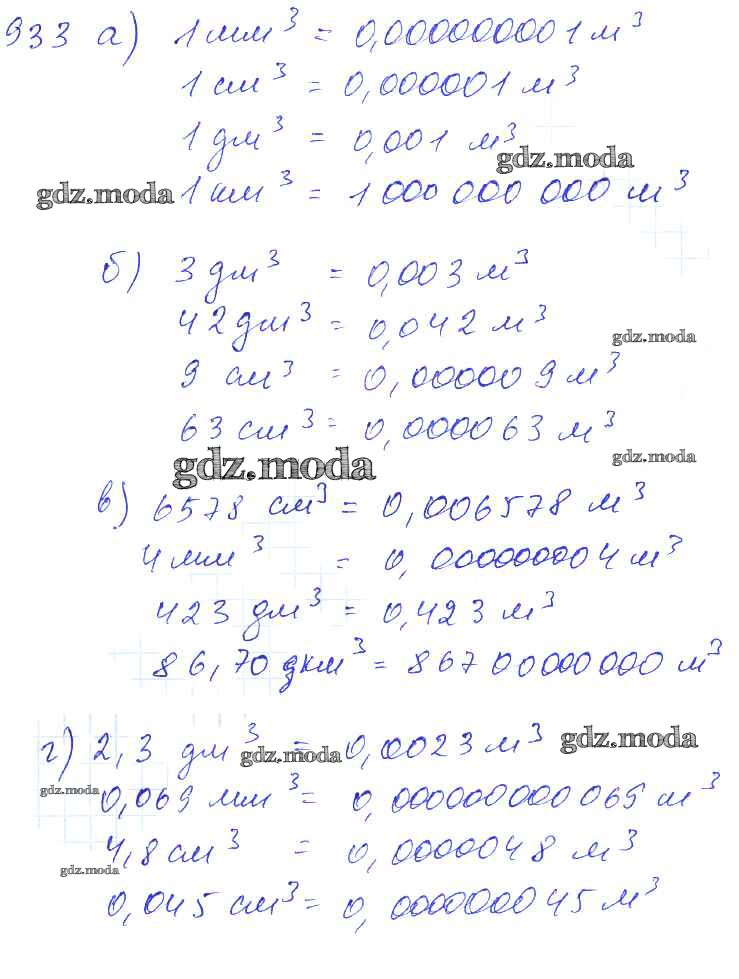 933 а) 1 мм³ = 0,000000001 м³
1 см³ = 0,000001 м³
1 дм³ = 0,001 м³
gdz.moda
gdz.moda 1 км³ = 1 000 000 000 м³
б) 3 дм³ = 0,003 м³
42 дм³ = 0,042 м³
gdz.moda
9 см³ = 0,000009 м³
63 см³ = 0,000063 м³
gdz.moda
gdz.moda
в) 6578 см³ = 0,006578 м³
4 мм³ = 0,000000004 м³
423 дм³ = 0,423 м³
86,70 дкм³ = 86700000000 м³
г) 2,3 дм³ = 0,0023 м³
gdz.moda
gdz.moda
gdz.moda
0,069 мм³ = 0,000000000069 м³
4,8 см³ = 0,0000048 м³
gdz.moda
0,045 см³ = 0,000000045 м³